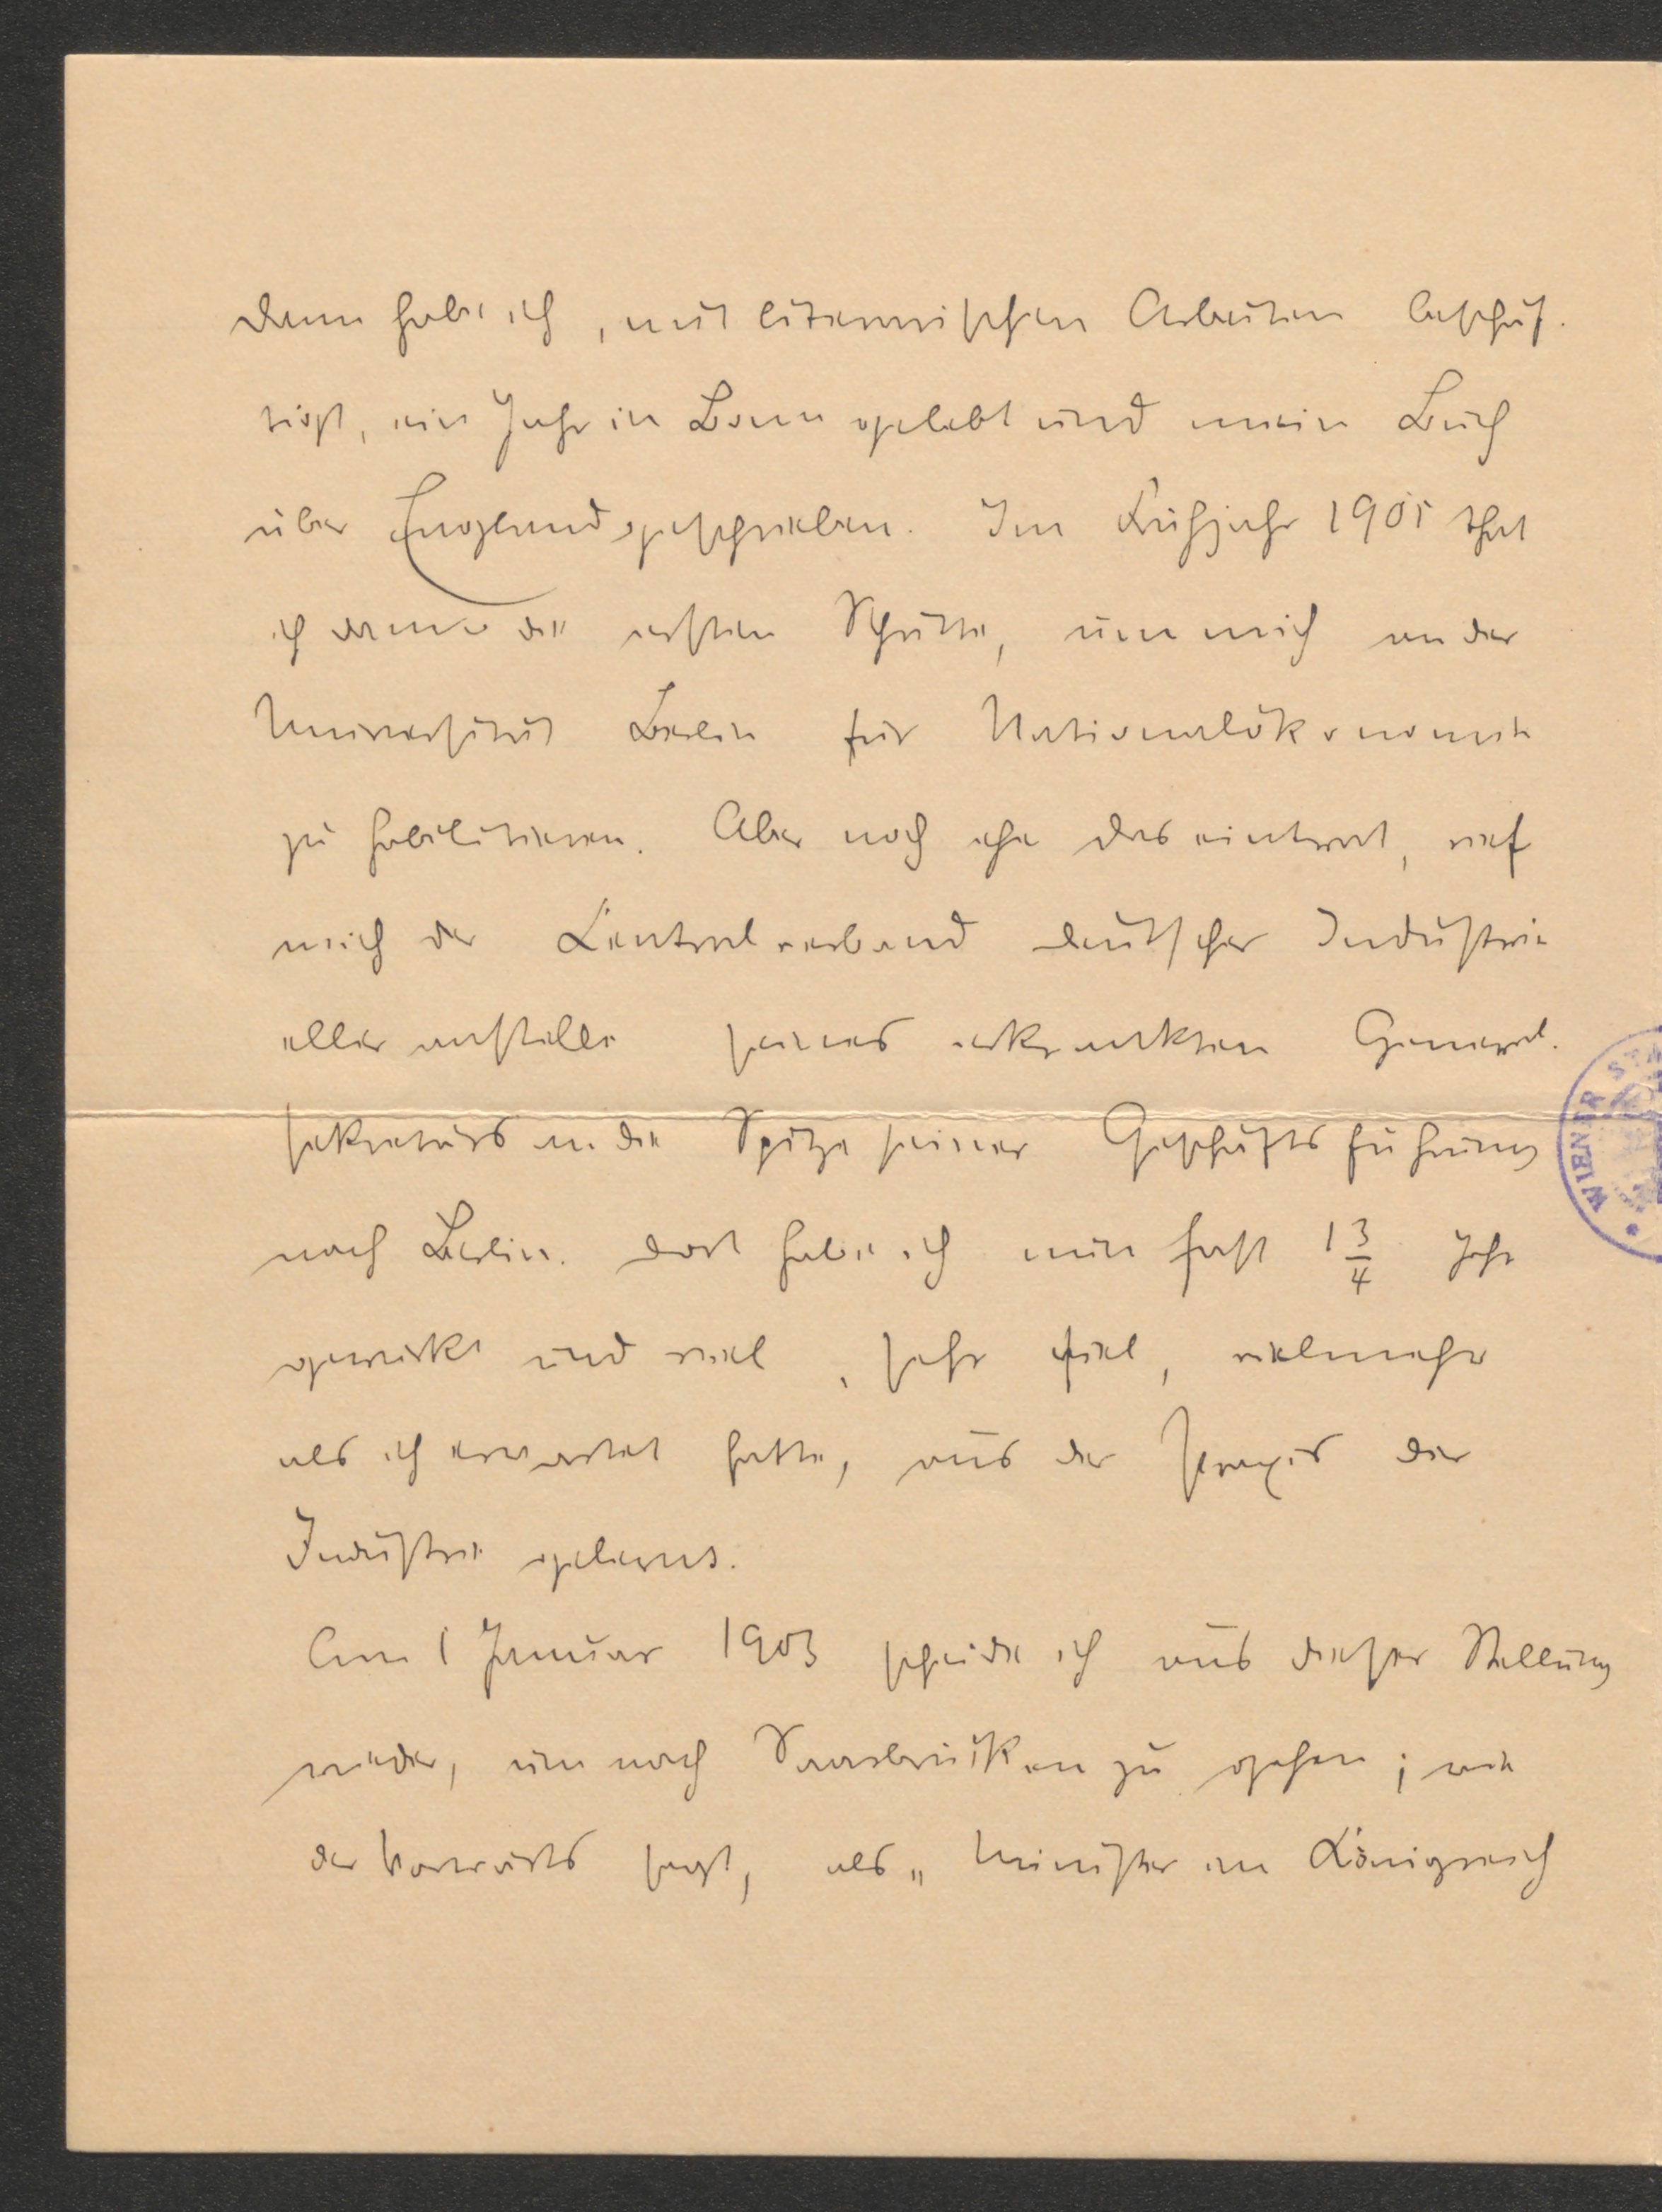 Dann habe ich, mit literarischen Arbeiten beschäf-
tigt, ein Jahr in Bonn gelebt und mein Buch
über England geschrieben. Im Frühjahr 1901 that
ich dann die ersten Schritte, um mich an der
Universität Berlin für Nationalökonomie
zu habilitieren. Aber noch ehe das eintrat, rief
mich der Centralverband deutscher Industri-
eller anstelle seines erkrankten General-
sekretärs an die Spitze seiner Geschäftsführung
nach Berlin. Dort habe ich nun fast 1 3/4 Jahr
gewirkt und viel, sehr viel, vielmehr
als ich erwartet hatte, aus der Praxis der
Industrie gelernt.
Am 1 Januar 1903 scheide ich aus dieser Stellung
wieder, um nach Saarbrücken zu gehen; wie
der Vorwärts sagt, als „Minister im Königreich
WIENER